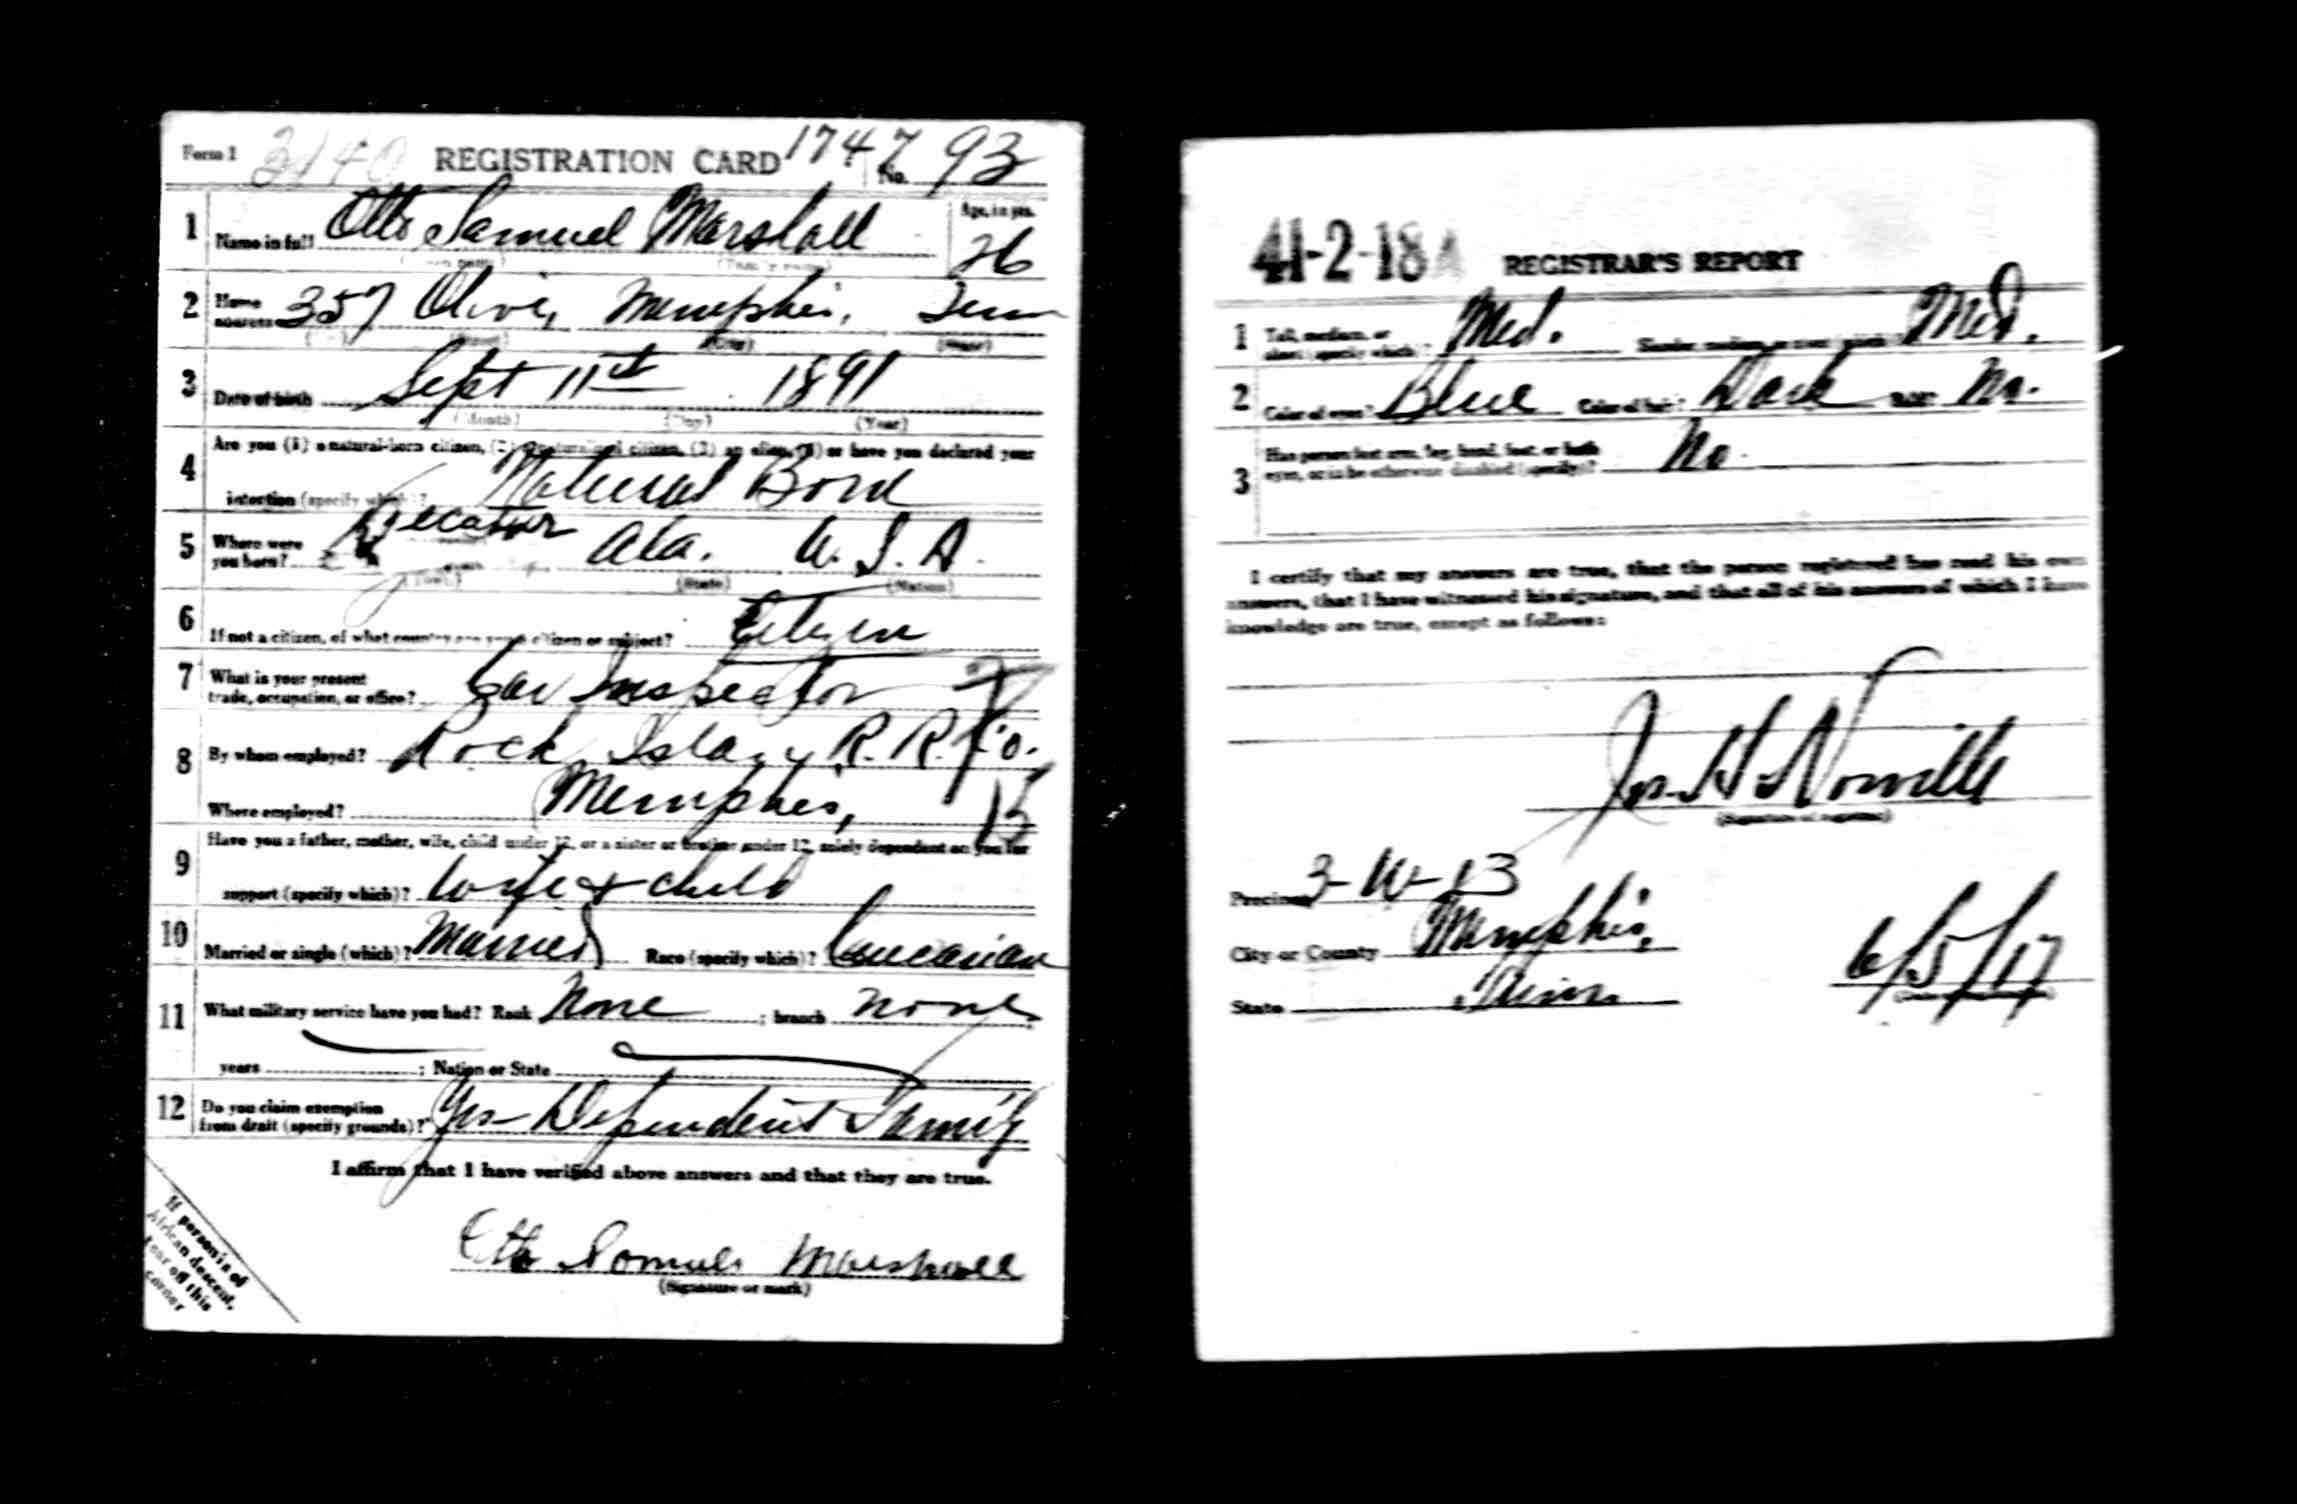 Form 1 3140 REGISTRATION CARD 1747 No. 93
1 Name in full Otto Samuel Marshall Age, in yrs. 26
(Family name)
2 Home address 357 Olive, Memphis, Tenn
(Street) (City) (State)
3 Date of birth Sept 11st 1891
(Month) (Day) (Year)
4 Are you (1) a natural-born citizen, (2) a naturalized citizen, (3) an alien, (4) or have you declared your
intention (specify which)? Natural Born
5 Where were you born? Decator Ala. U. S. A.
(Town) (State) (Nation)
6 If not a citizen, of what country are you a citizen or subject? Citizen
7 What is your present
trade, occupation, or office? Car Inspector
8 By whom employed? Rock Island R. R. Co.
Where employed? Memphis, 15
9 Have you a father, mother, wife, child under 12, or a sister or brother under 12, solely dependent on you for
support (specify which)? Wife & child
10 Married or single (which)? Married Race (specify which)? Caucasian
11 What military service have you had? Rank None ; branch none
years ; Nation or State
12 Do you claim exemption
from draft (specify grounds)? Yes - Dependent Family
I affirm that I have verified above answers and that they are true.
Otto Samuel Marshall
(Signature or mark)
If person is of
African descent,
tear off this
corner
41-2-18 A REGISTRAR'S REPORT
1 Tall, medium, or
short (specify which)? Med. Slender, medium, or stout (which)? Med.
2 Color of eyes? Blue Color of hair? Dark Bald? No.
3 Has person lost arm, leg, hand, foot, or both
eyes, or is he otherwise disabled (specify)? No.
I certify that my answers are true, that the person registered has read his own
answers, that I have witnessed his signature, and that all of his answers of which I have
knowledge are true, except as follows:
Jos. H. Norville
(Signature of registrar)
Precinct 3-W-13
City or County Memphis,
State Tenn. 6/5/17
(Date of registration)